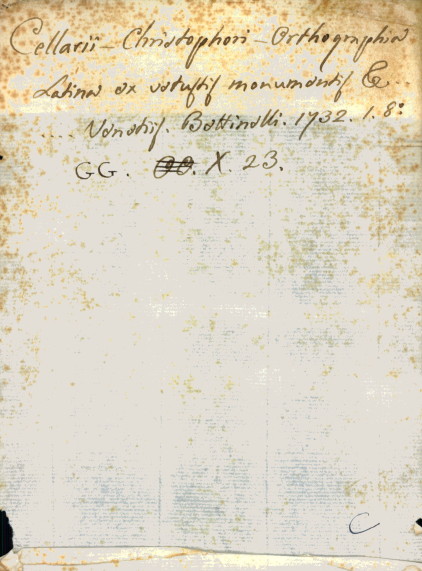 Cellarii - Christophori - Orthographia
Latina ex vetustis monumentis &
.... Venetiis. Bettinelli. 1732. 1. 8°
GG. X. 23.
C